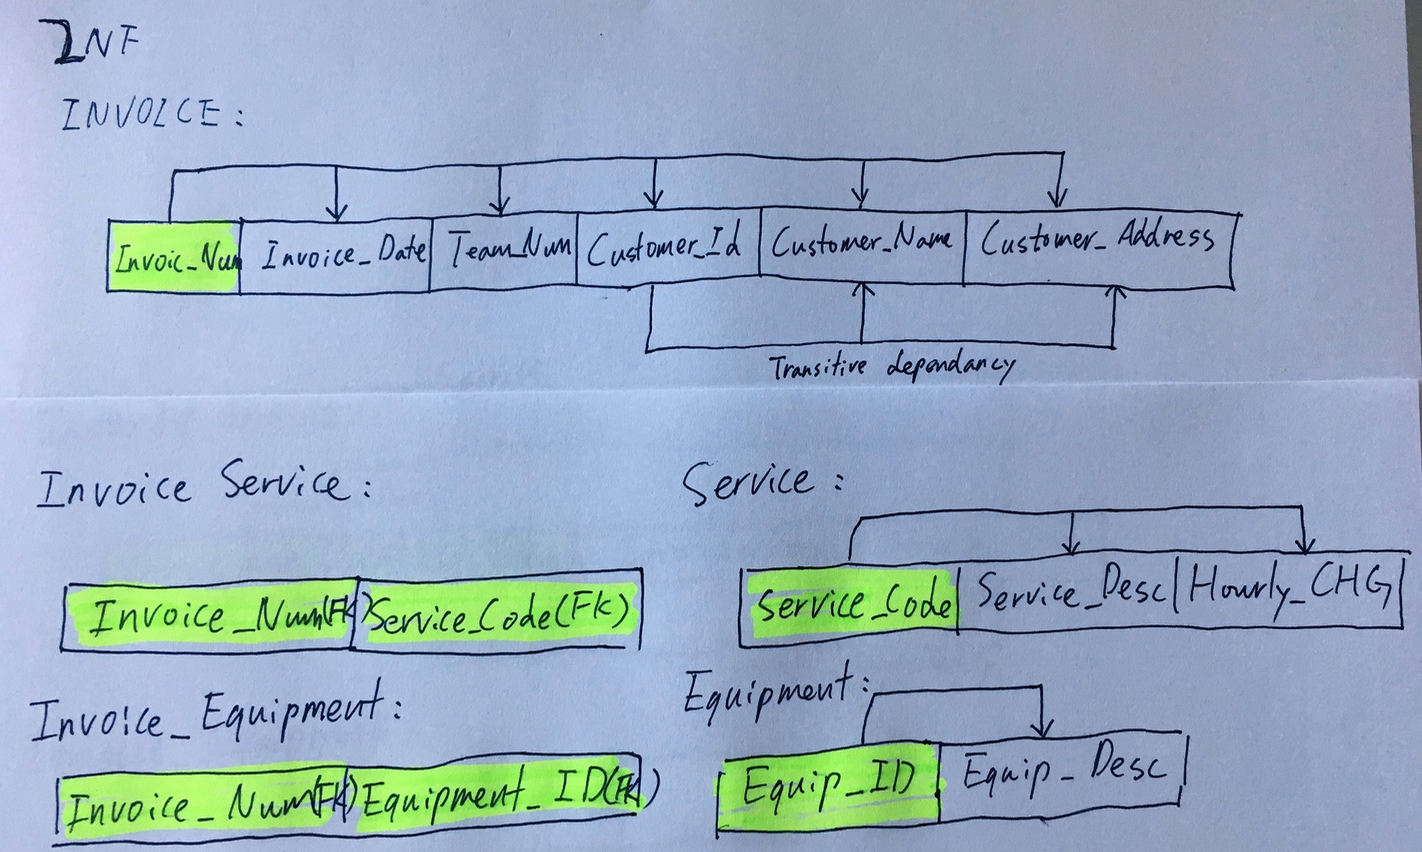 2NF
INVOICE:
Invoic_Num Invoice_Date Team_Num Customer_Id Customer_Name Customer_Address
Transitive dependancy
Invoice Service:
Service:
Invoice_Num(FK) Service_Code(FK)
Service_Code Service_Desc Hourly_CHG
Invoice_Equipment:
Equipment:
Invoice_Num(FK) Equipment_ID(FK)
Equip_ID Equip_Desc